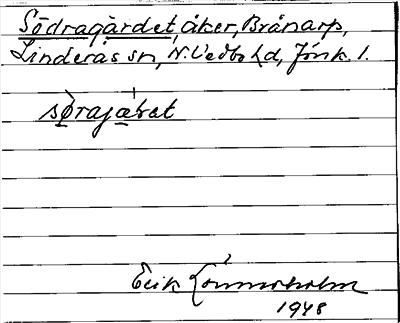 Södragärdet, åker, Brånarp,
Linderås sn, N. Vedbo hd, Jönk. l.
sørajat
Erik
1948